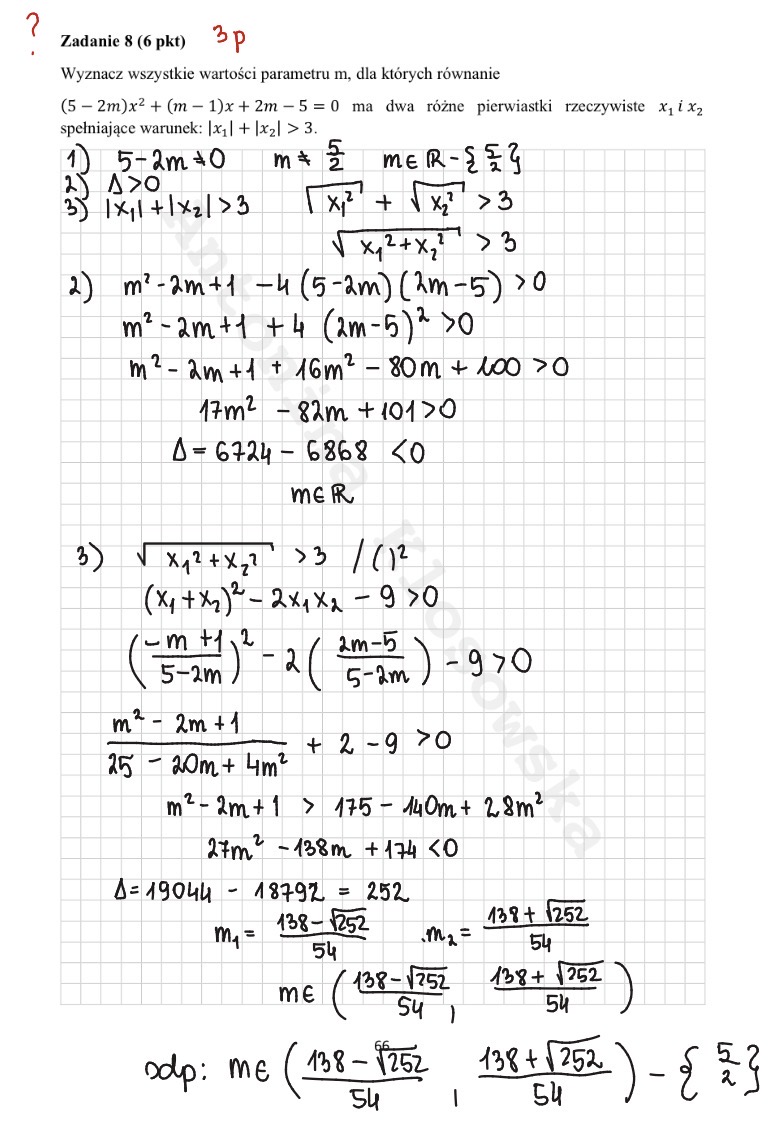 ? Zadanie 8 (6 pkt) 3p
Wyznacz wszystkie wartości parametru m, dla których równanie
(5 − 2m)x² + (m − 1)x + 2m − 5 = 0 ma dwa różne pierwiastki rzeczywiste x₁ i x₂
spełniające warunek: |x₁| + |x₂| > 3.
1) 5-2m ≠ 0 m ≠ 5/2 m∈ℝ-{5/2}
2) Δ>0
3) |x₁|+|x₂|>3 √(x₁²) + √(x₂²) >3
√(x₁²+x₂²) >3
2) m²-2m+1 -4(5-2m)(2m-5) >0
m²-2m+1 +4 (2m-5)² >0
m²-2m+1 + 16m² - 80m + 100 >0
17m² - 82m + 101>0
Δ = 6724 - 6868 <0
m∈ℝ
3) √(x₁²+x₂²) >3 /()²
(x₁+x₂)² - 2x₁x₂ - 9 >0
((-m+1)/(5-2m))² - 2((2m-5)/(5-2m)) - 9 >0
(m²-2m+1)/(25 - 20m + 4m²) + 2 - 9 >0
m²-2m+1 > 175 - 140m + 28m²
27m² - 138m + 174 <0
Δ = 19044 - 18792 = 252
m₁ = (138-√252)/54 m₂ = (138+√252)/54
m∈ ((138-√252)/54 , (138+√252)/54)
odp: m∈ ((138-√252)/54 , (138+√252)/54) - {5/2}
66
Antonina Kłosowska